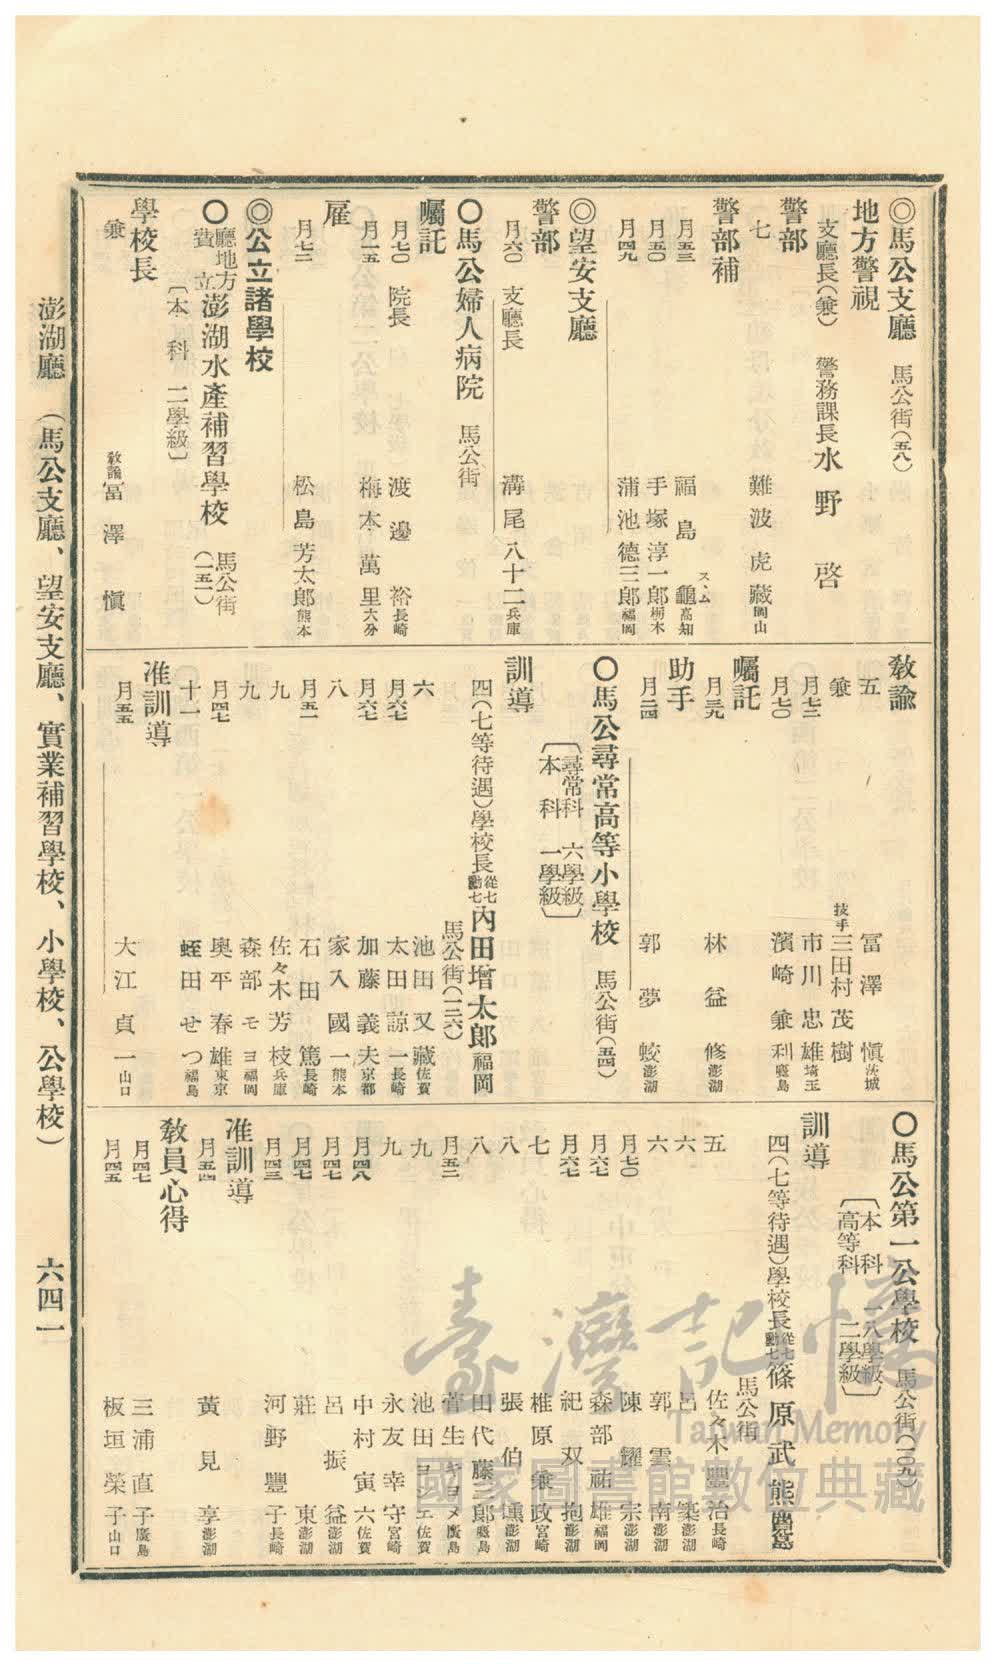 ◎馬公支廳 馬公街(五八)
地方警視
支廳長(兼) 警務課長 水野啓
警部
七 難波虎藏 岡山
警部補
月五三 福島龜 高知
月五〇 手塚淳一郎 栃木
月四九 蒲池德三郎 福岡
◎望安支廳
警部
月六〇 支廳長 溝尾八十二 兵庫
〇馬公婦人病院 馬公街
囑託
月七〇 院長 渡邊裕 長崎
月一五 梅本萬里 大分
雇
月七二 松島芳太郎 熊本
◎公立諸學校
〇廳地方費立澎湖水產補習學校 馬公街(一五一)
〔本科 二學級〕
學校長
兼 教諭 冨澤愼
教諭
五 冨澤愼 茨城
兼 技手 三田村茂樹
月七三 市川忠雄 埼玉
月七〇 濱崎兼利
囑託
月三九 林益修 澎湖
助手
月二四 郭夢蛟 澎湖
〇馬公尋常高等小學校 馬公街(五四)
〔尋常科 六學級
本科 一學級〕
訓導
四(七等待遇)學校長 從七勳七 內田增太郎 福岡
馬公街(一二六)
六 池田又藏 佐賀
月六七 太田諒一 長崎
月六七 加藤義夫 京都
八 家入國一 熊本
月五一 石田篤 長崎
九 佐々木芳枝 兵庫
九 森部モヨ 福岡
月四七 奧平春雄 東京
十一 蛭田せつ 福島
准訓導
月五五 大江貞一 山口
〇馬公第一公學校 馬公街(一〇九)
〔本科 一八學級
高等科 二學級〕
訓導
四(七等待遇)學校長 從七勳七 篠原武熊
馬公街
五 佐々木豐治 長崎
六 呂築 澎湖
六 郭雲南 澎湖
月七〇 陳耀宗 澎湖
月六七 森部祐雄 福岡
月六七 紀双抱 澎湖
七 椎原兼政 宮崎
八 張伯壎 澎湖
八 田代藤三郎
月五二 菅生キヨメ 廣島
九 池田ヨシエ 佐賀
九 永友幸守 宮崎
月四八 中村寅六 佐賀
月四七 呂振益 澎湖
月四七 莊東 澎湖
月四三 河野豐子 長崎
准訓導
月五四 黃見享 澎湖
教員心得
月四七 三浦直子 廣島
月四五 板垣榮子 山口
澎湖廳 (馬公支廳、望安支廳、實業補習學校、小學校、公學校) 六四一
臺灣記憶
Taiwan Memory
國家圖書館數位典藏